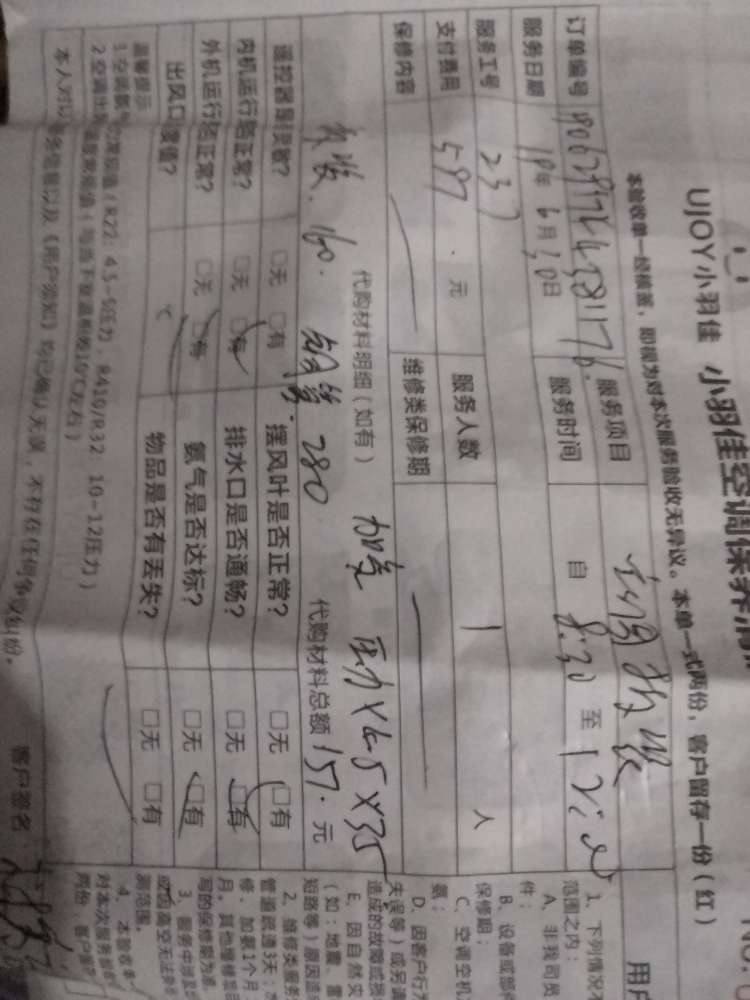 UJOY小羽佳 小羽佳空调保养清
本验收单一经核签，即视为对本次服务验收无异议。本单一式两份，客户留存一份（红）
订单编号
服务项目 空调拆装
服务日期 19年 6月 10日 服务时间 自 8:30 至
服务工号 237 服务人数 1 人
支付费用 597 . 元
保修内容 维修类保修期
代购材料明细（如有） 加气 压力×4.5×35
拆装. 160. 铜管. 280 代购材料总额 157. 元
遥控器是否灵敏？ □无 □有 摆风叶是否正常？ □无 □有
内机运行是否正常？ □无 □有 排水口是否通畅？ □无 □有
外机运行是否正常？ □无 □有 氨气是否达标？ □无 □有
出风口 度值？ ℃ 物品是否有丢失？ □无 □有
温馨提示
1.空调氨气 力常规值（R22：4.5-5压力，R410/R32：10-12压力）
2.空调出风 温度常规值（与当下室温相减10℃左右）
本人对以 务信息以及《用户须知》均已确认无误，不存在任何争议纠纷。
客户签名
NO.
用户
1、下列情况
范围之内：
A、非我司员
件；
B、设备或部件
保修期；
C、空调空机
氨；
D、因客户行为
失误等）或另请
造成的故障或损
E、因自然灾
（如：地震、雷
短路等）原因造
2、维修类服务
管道疏通3天；
修、加氨1个月
月，其他维修单
写的保修期为准
3、服务中涉及
或因高空无法
测范围。
4、本验收单
对本次服务验收
两份，客户留存